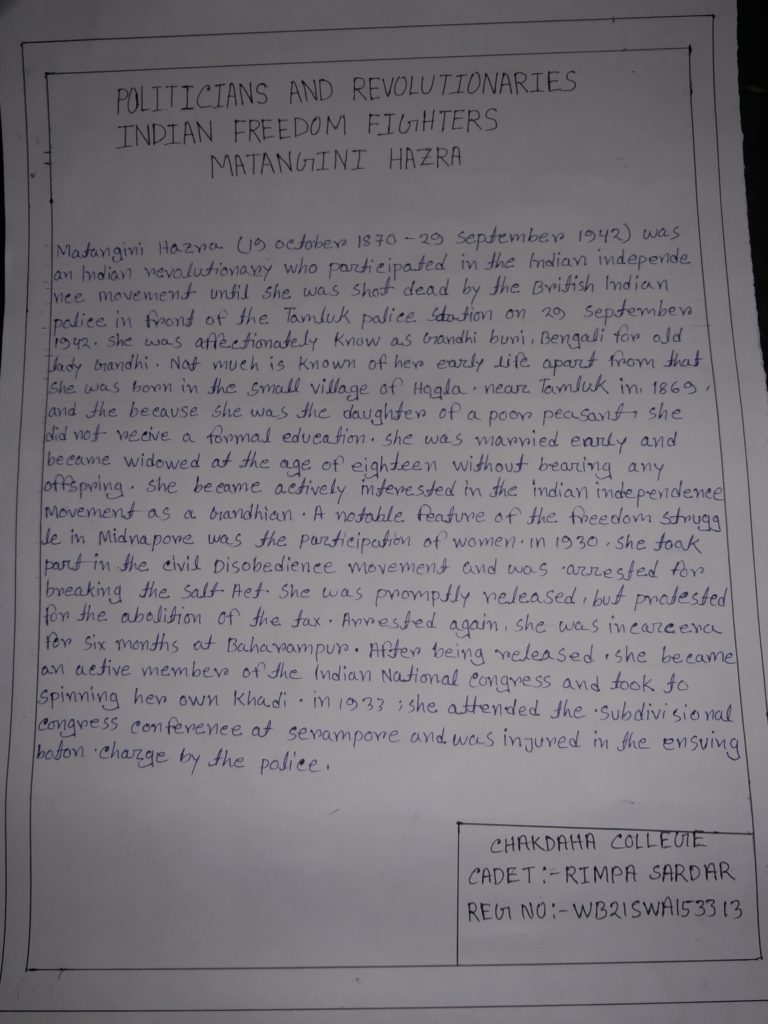 POLITICIANS AND REVOLUTIONARIES
INDIAN FREEDOM FIGHTERS
MATANGINI HAZRA
Matangini Hazra (19 october 1870 - 29 September 1942) was
an Indian revolutionary who participated in the Indian independe
nce movement until she was shot dead by the British Indian
police in front of the Tamluk police station on 29 September
1942. she was affectionately know as Gandhi buri, Bengali for old
lady Gandhi. Not much is known of her early life apart from that
she was born in the small village of Hogla. near Tamluk in, 1869,
and the because she was the daughter of a poor peasant, she
did not recive a formal education. she was married early and
became widowed at the age of eighteen without bearing any
offspring. she became actively interested in the indian independence
movement as a Gandhian. A notable feature of the freedom strugg
le in Midnapore was the participation of women. in 1930, she took
part in the civil Disobedience movement and was arrested for
breaking the salt Act. she was promptly released, but protested
for the abolition of the tax. Arrested again, she was incarcera
for six months at Baharampur. After being released, she became
an active member of the Indian National congress and took to
spinning her own Khadi. in 1933, she attended the subdivisional
congress conference at serampore and was injured in the ensuing
baton charge by the police.
CHAKDAHA COLLEGE
CADET:- RIMPA SARDAR
REG NO:- WB21SWA153313